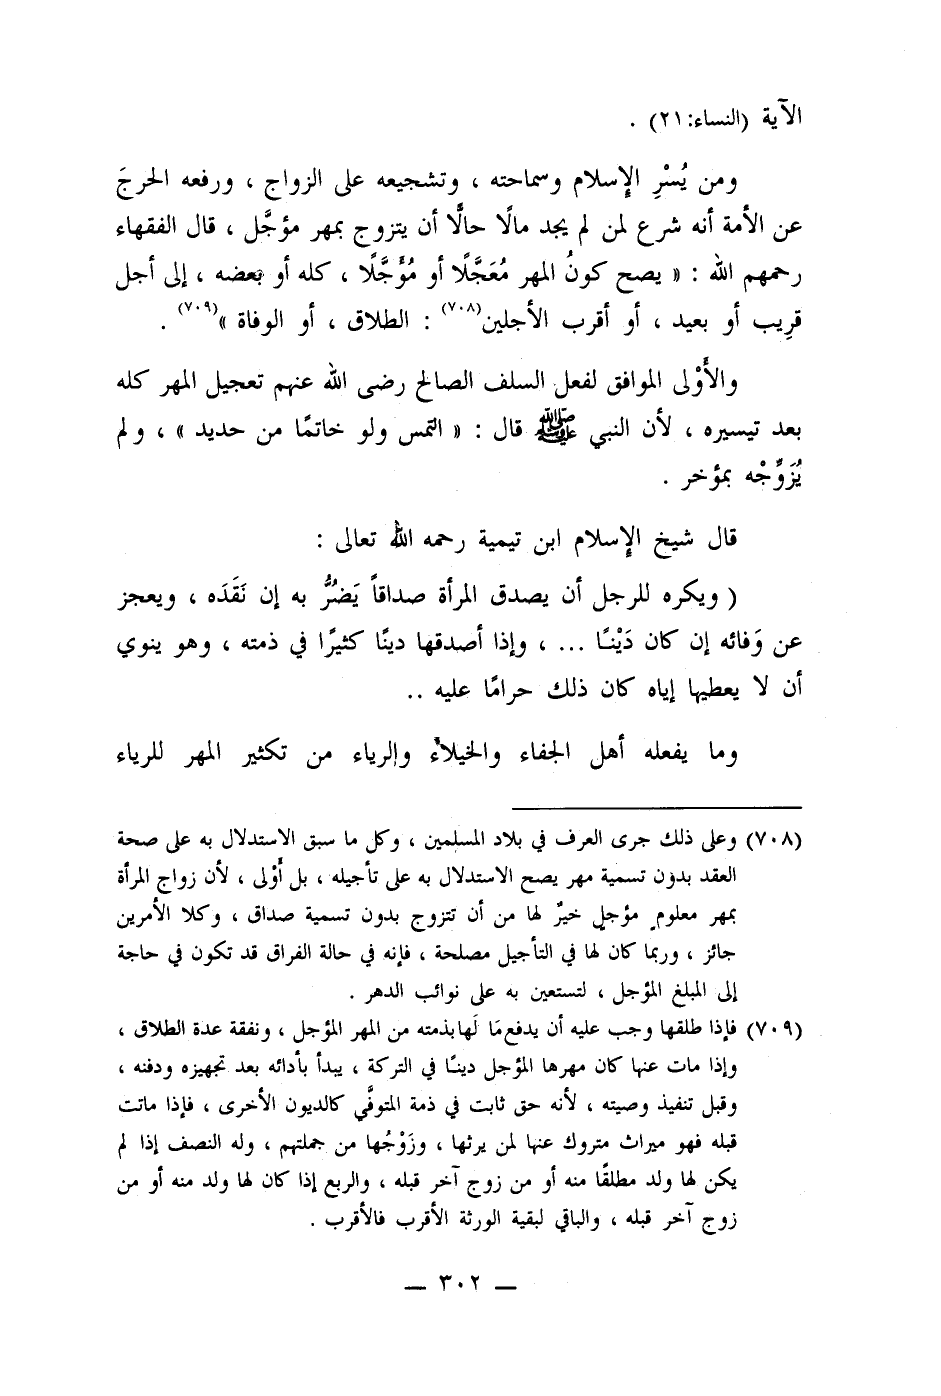 الآية (النساء: ٢١) .
ومن يُسْرِ الإسلام وسماحته ، وتشجيعه على الزواج ، ورفعه الحرجَ
عن الأمة أنه شرع لمن لم يجد مالًا حالًّا أن يتزوج بمهر مؤجَّل ، قال الفقهاء
رحمهم الله : « يصح كونُ المهر مُعَجَّلًا أو مُؤَجَّلًا ، كله أو بعضه ، إلى أجل
قريب أو بعيد ، أو أقرب الأجلين(٧٠٨) : الطلاق ، أو الوفاة »(٧٠٩) .
والأَوْلى الموافق لفعل السلف الصالح رضى الله عنهم تعجيل المهر كله
بعد تيسيره ، لأن النبي ﷺ قال : « التمس ولو خاتمًا من حديد » ، ولم
يُزَوِّجْه بمؤخر .
قال شيخ الإسلام ابن تيمية رحمه الله تعالى :
( ويكره للرجل أن يصدق المرأة صداقاً يَضُرُّ به إن نَقَدَه ، ويعجز
عن وَفائه إن كان دَيْنًا ... ، وإذا أصدقها دينًا كثيرًا في ذمته ، وهو ينوي
أن لا يعطيها إياه كان ذلك حرامًا عليه ..
وما يفعله أهل الجفاء والخيلاء والرياء من تكثير المهر للرياء
(٧٠٨) وعلى ذلك جرى العرف في بلاد المسلمين ، وكل ما سبق الاستدلال به على صحة
العقد بدون تسمية مهر يصح الاستدلال به على تأجيله ، بل أَوْلى ، لأن زواج المرأة
بمهر معلومٍ مؤجلٍ خيرٌ لها من أن تتزوج بدون تسمية صداق ، وكلا الأمرين
جائز ، وربما كان لها في التأجيل مصلحة ، فإنه في حالة الفراق قد تكون في حاجة
إلى المبلغ المؤجل ، لتستعين به على نوائب الدهر .
(٧٠٩) فإذا طلقها وجب عليه أن يدفع مَا لَها بذمته من المهر المؤجل ، ونفقة عدة الطلاق ،
وإذا مات عنها كان مهرها المؤجل دينًا في التركة ، يبدأ بأدائه بعد تجهيزه ودفنه ،
وقبل تنفيذ وصيته ، لأنه حق ثابت في ذمة المتوفَّي كالديون الأخرى ، فإذا ماتت
قبله فهو ميراث متروك عنها لمن يرثها ، وزَوْجُها من جملتهم ، وله النصف إذا لم
يكن لها ولد مطلقًا منه أو من زوج آخر قبله ، والربع إذا كان لها ولد منه أو من
زوج آخر قبله ، والباقي لبقية الورثة الأقرب فالأقرب .
— ٣٠٢ —